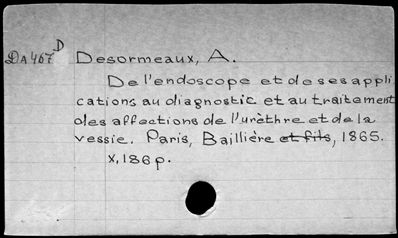 Da467 D Desormeaux, A.
De l'endoscope et de ses appli
cations au diagnostic et au traitement
des affections de l'urèthre et de la
vessie. Paris, Baillière et fils, 1865.
x, 186 p.